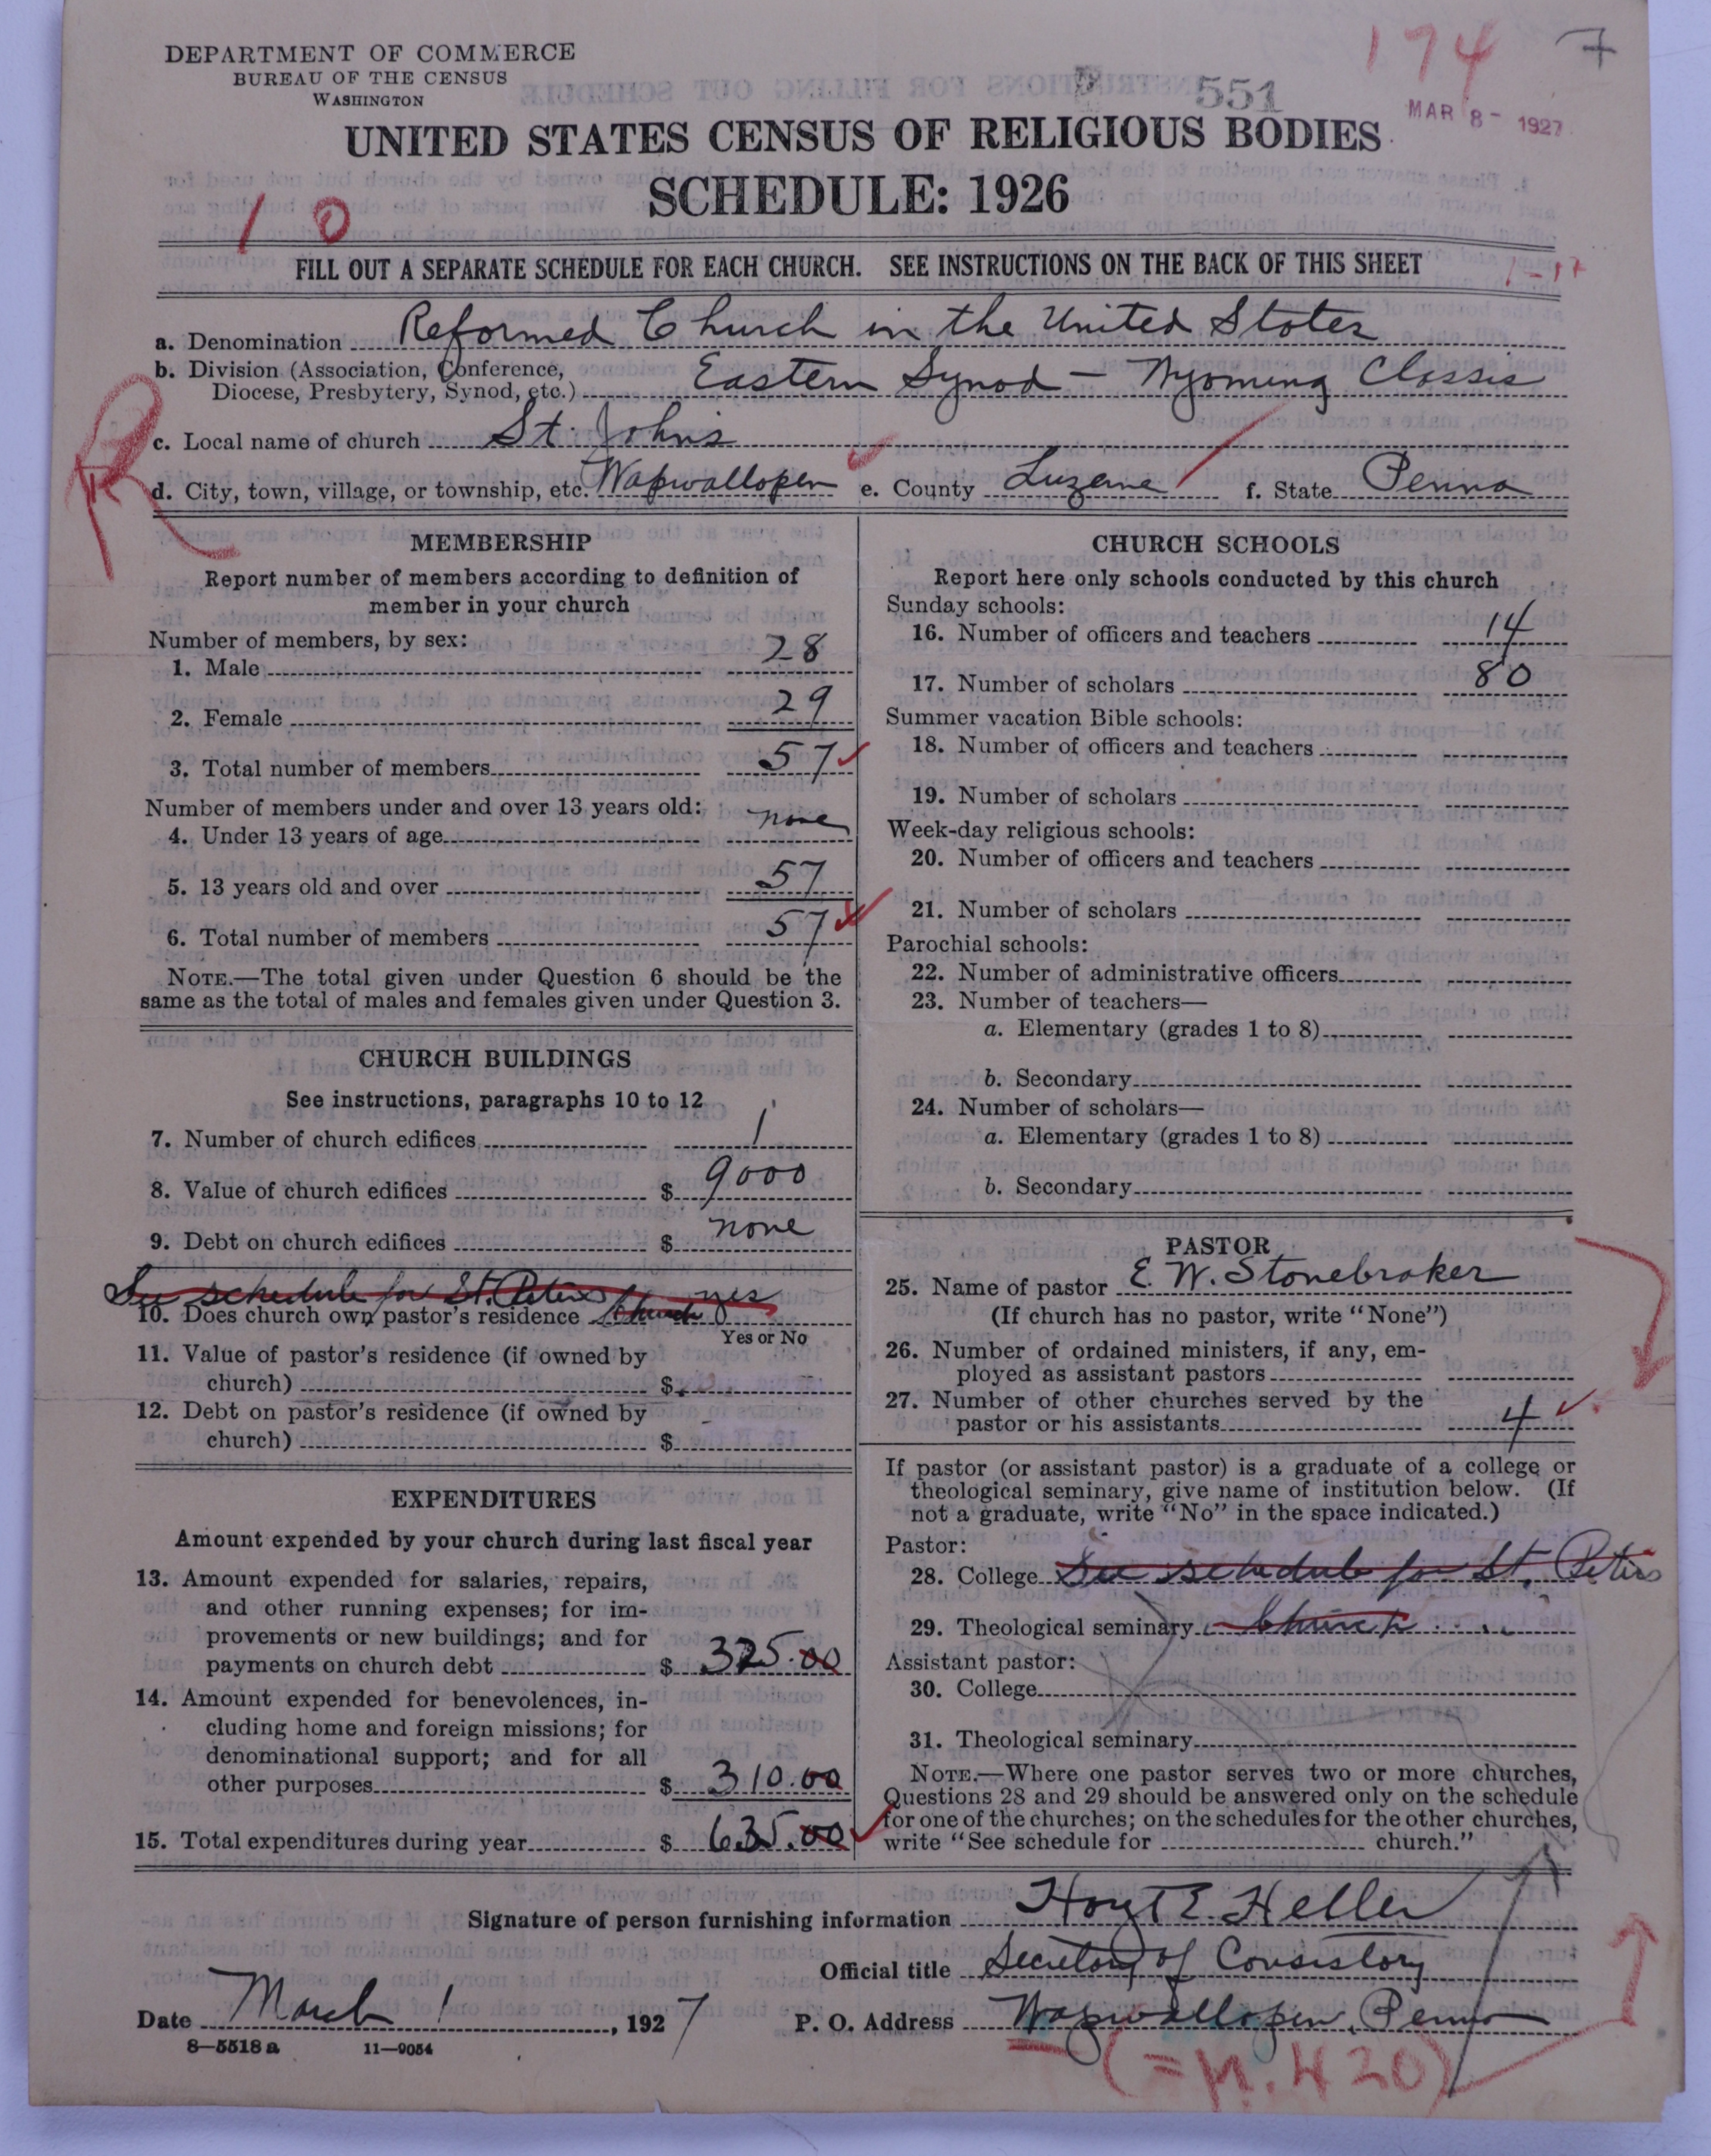 DEPARTMENT OF COMMERCE
BUREAU OF THE CENSUS
WASHINGTON
174
7
551
MAR 8 - 1927
UNITED STATES CENSUS OF RELIGIOUS BODIES
SCHEDULE: 1926
10
FILL OUT A SEPARATE SCHEDULE FOR EACH CHURCH. SEE INSTRUCTIONS ON THE BACK OF THIS SHEET
a. Denomination Reformed Church in the United States
b. Division (Association, Conference,
Diocese, Presbytery, Synod, etc.) Eastern Synod - Wyoming Classis
c. Local name of church St. Johns
d. City, town, village, or township, etc. Wapwallopen e. County Luzerne f. State Penna
MEMBERSHIP
Report number of members according to definition of
member in your church
Number of members, by sex:
1. Male 28
2. Female 29
3. Total number of members 57
Number of members under and over 13 years old:
4. Under 13 years of age none
5. 13 years old and over 57
6. Total number of members 57
NOTE.—The total given under Question 6 should be the
same as the total of males and females given under Question 3.
CHURCH BUILDINGS
See instructions, paragraphs 10 to 12
7. Number of church edifices 1
8. Value of church edifices $ 9000
9. Debt on church edifices $ none
See schedule for St. Peters yes
10. Does church own pastor's residence Church
Yes or No
11. Value of pastor's residence (if owned by
church) $
12. Debt on pastor's residence (if owned by
church) $
EXPENDITURES
Amount expended by your church during last fiscal year
13. Amount expended for salaries, repairs,
and other running expenses; for im-
provements or new buildings; and for
payments on church debt $ 325.00
14. Amount expended for benevolences, in-
cluding home and foreign missions; for
denominational support; and for all
other purposes $ 310.00
15. Total expenditures during year $ 635.00
CHURCH SCHOOLS
Report here only schools conducted by this church
Sunday schools:
16. Number of officers and teachers 14
17. Number of scholars 80
Summer vacation Bible schools:
18. Number of officers and teachers
19. Number of scholars
Week-day religious schools:
20. Number of officers and teachers
21. Number of scholars
Parochial schools:
22. Number of administrative officers
23. Number of teachers—
a. Elementary (grades 1 to 8)
b. Secondary
24. Number of scholars—
a. Elementary (grades 1 to 8)
b. Secondary
PASTOR
25. Name of pastor E. W. Stonebraker
(If church has no pastor, write "None")
26. Number of ordained ministers, if any, em-
ployed as assistant pastors
27. Number of other churches served by the
pastor or his assistants 4
If pastor (or assistant pastor) is a graduate of a college or
theological seminary, give name of institution below. (If
not a graduate, write "No" in the space indicated.)
Pastor:
28. College See schedule for St. Peters
29. Theological seminary Church
Assistant pastor:
30. College
31. Theological seminary
NOTE.—Where one pastor serves two or more churches,
Questions 28 and 29 should be answered only on the schedule
for one of the churches; on the schedules for the other churches,
write "See schedule for church."
Signature of person furnishing information Hoyt E. Heller
Official title Secretary of Consistory
Date March 1, 1927 P. O. Address Wapwallopen, Penna
8—5518a 11—9054
(= p. 420)